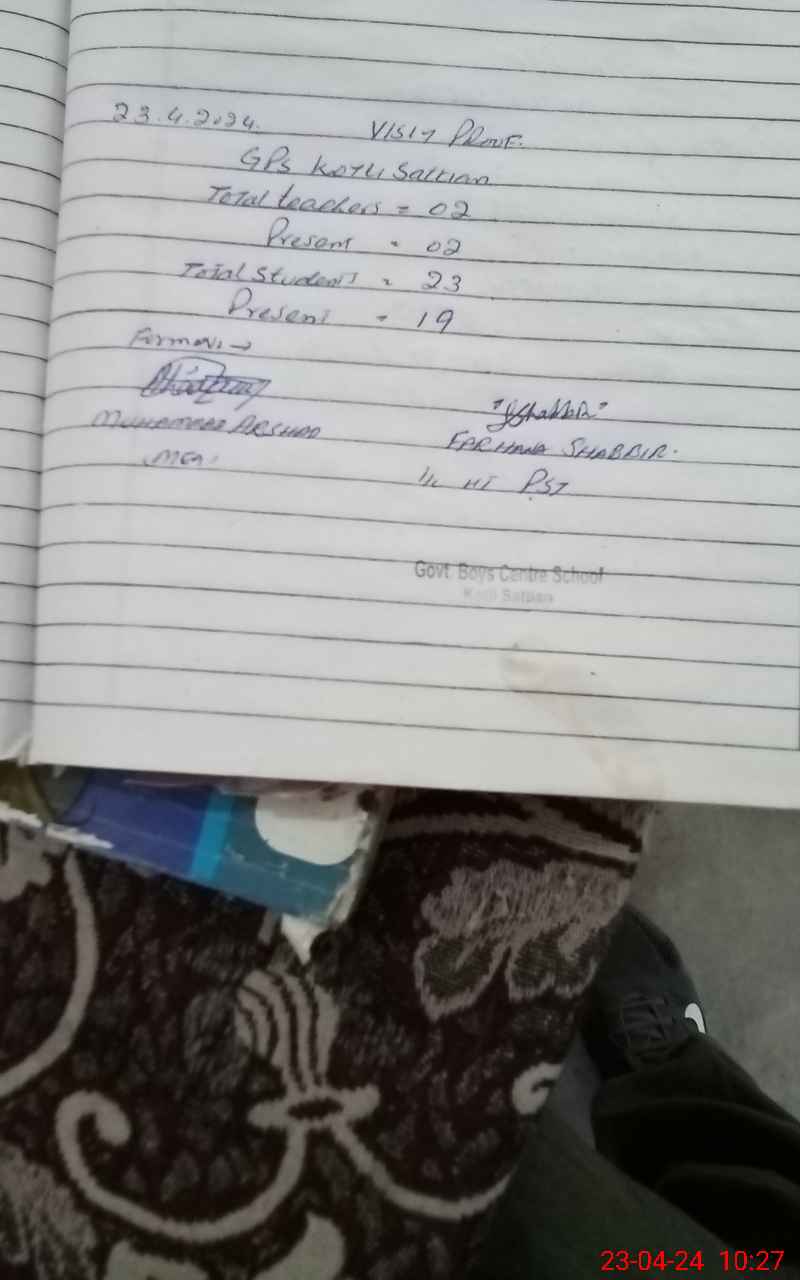 23.4.2024. VISIT PROUF.
GPS Kotli Sattian
Total teachers = 02
Present = 02
Total Students = 23
Present = 19
"Shabbir"
MUHAMMAD ARSHAD
FARHANA SHABBIR.
MEA.
I/C HT PST
Govt. Boys Centre School
Kotli Sattian
23-04-24 10:27